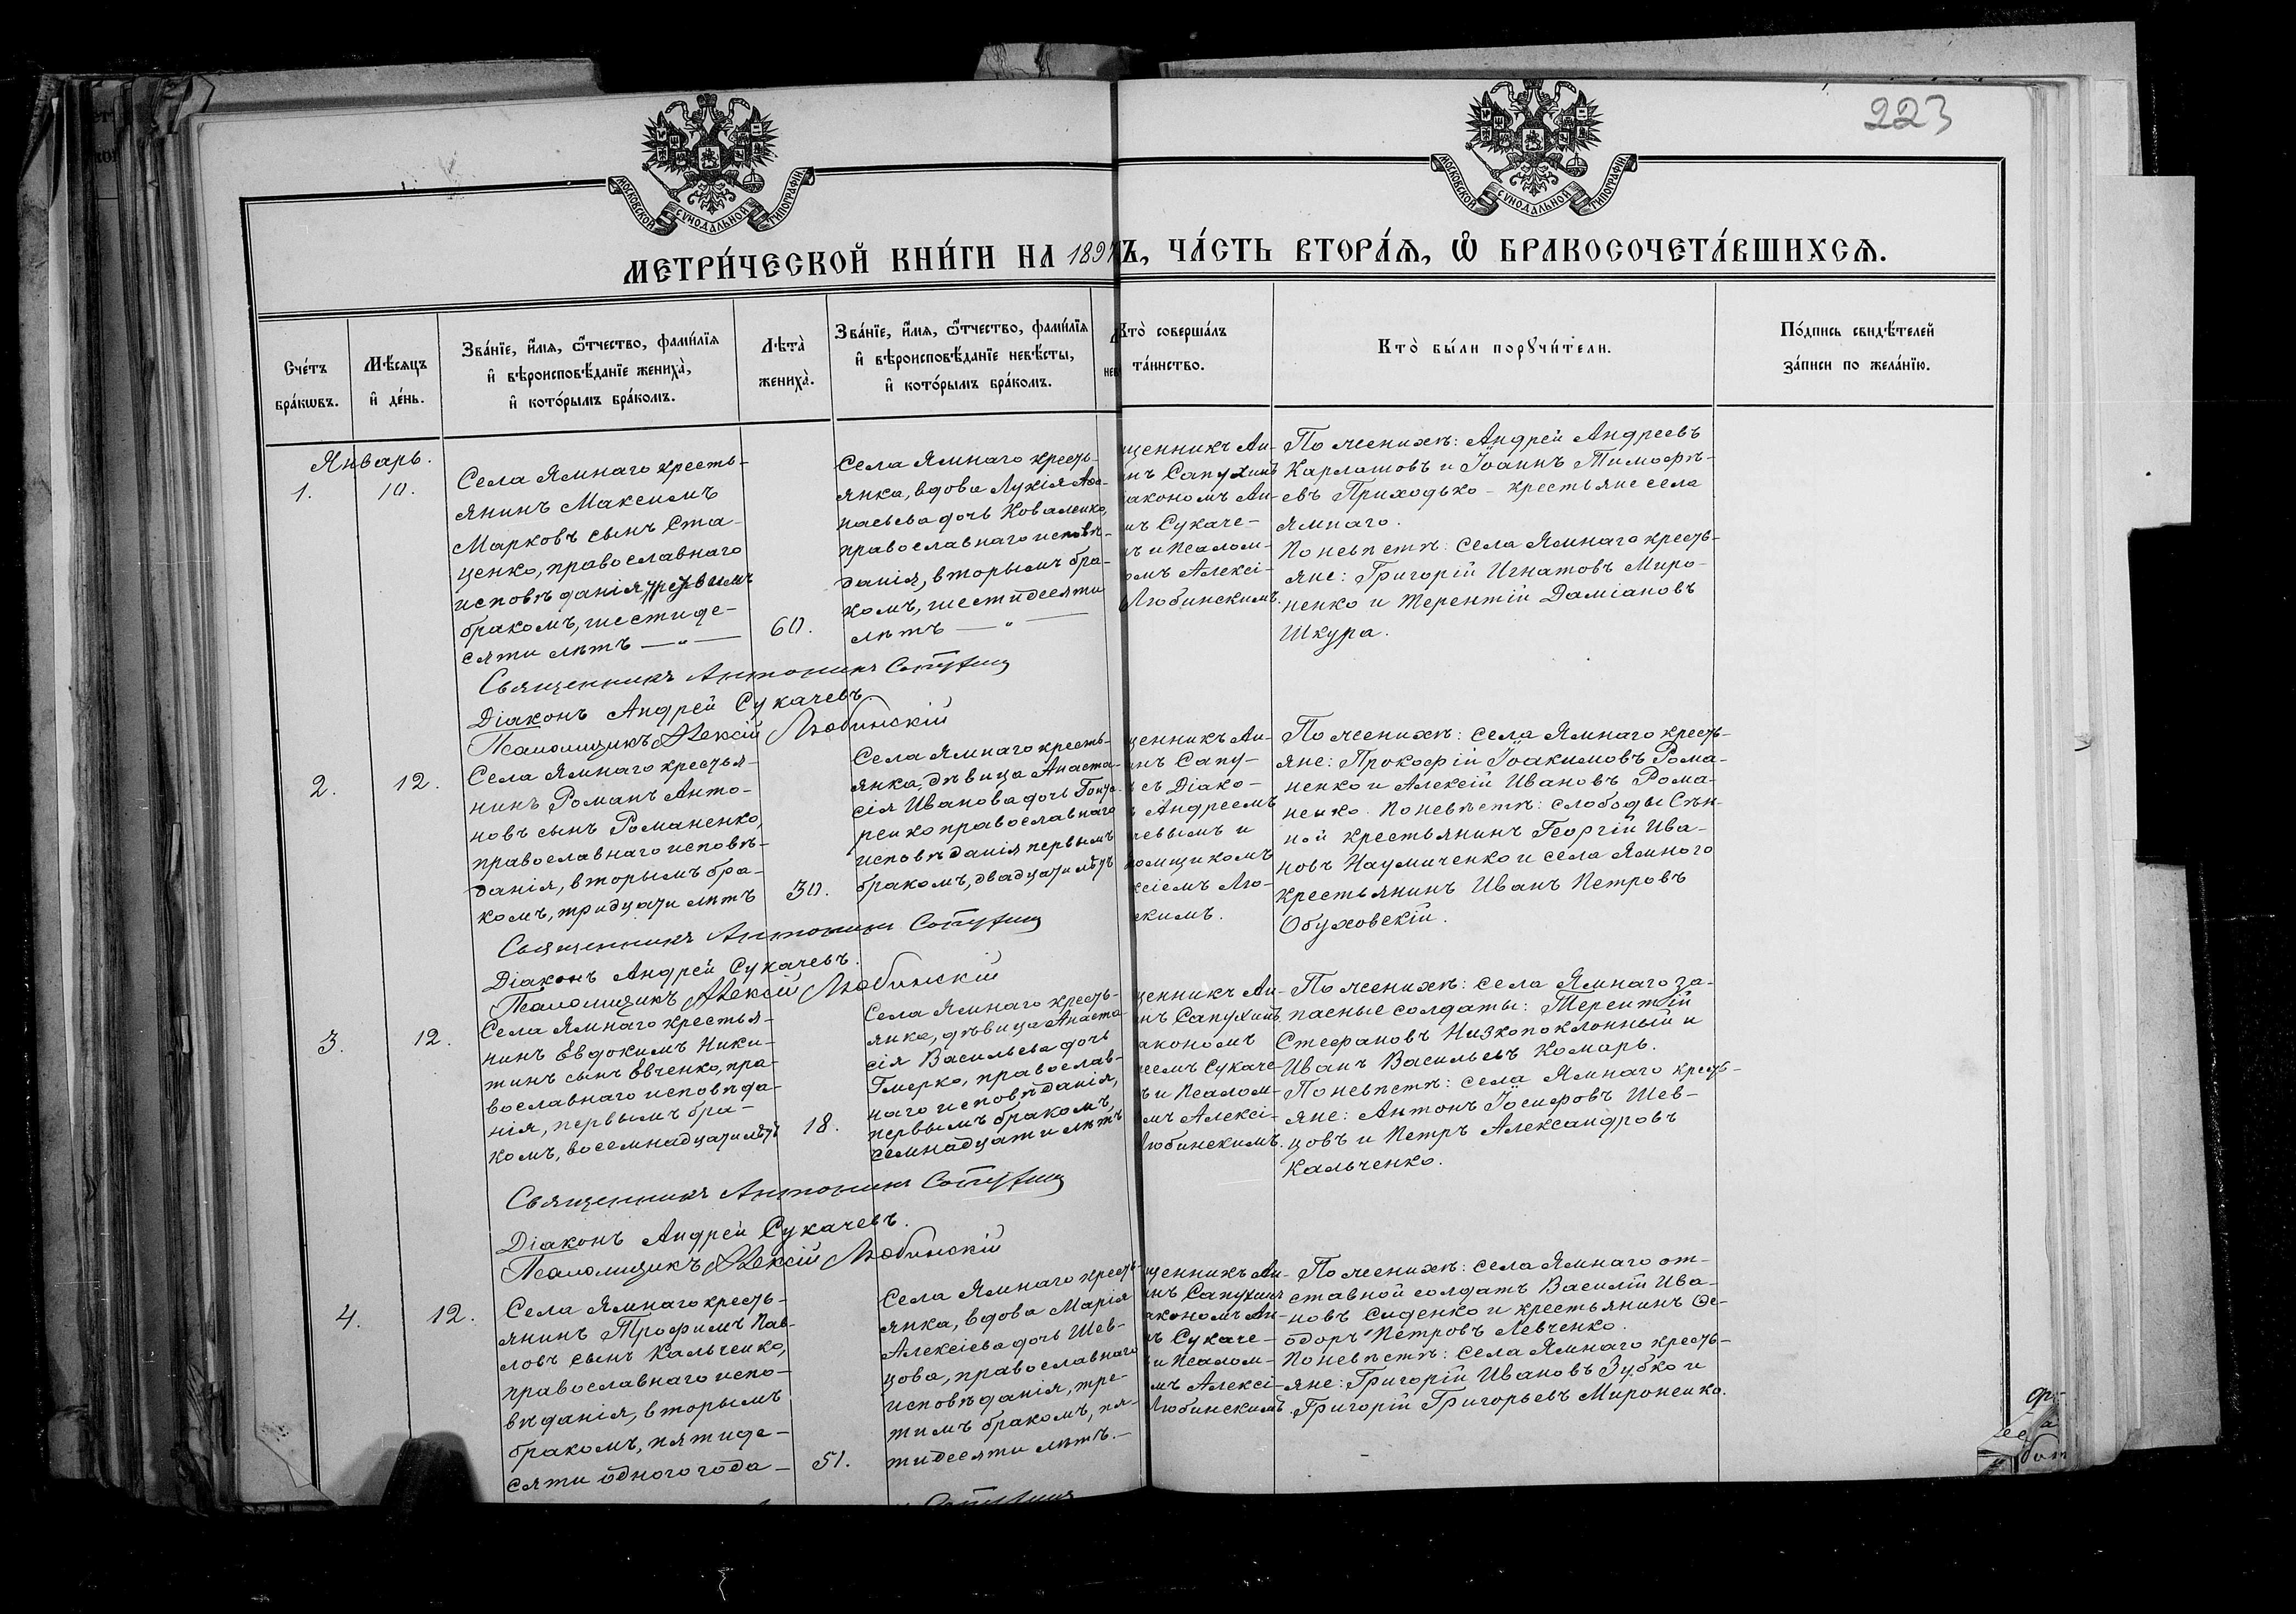 223
МОСКОВСКОЙ СѴНОДАЛЬНОЙ ТИПОГРАФІИ
МОСКОВСКОЙ СѴНОДАЛЬНОЙ ТИПОГРАФІИ
МЕТРИ́ЧЕСКОЙ КНИ́ГИ НА 189 Ъ, ЧА́СТЬ ВТОРА́Ѧ, Ѡ҆ БРАКОСОЧЕТА́ВШИХСѦ.
Сче́тъ
бра́кѡвъ.
Мѣ́сяцъ
и҆ де́нь.
Зва́нїе, и҆́мѧ, ѻ҆́тчество, фами́лїѧ
и҆ вѣроисповѣ́данїе жениха̀,
и҆ кото́рымъ бра́комъ.
Лѣта̀
жениха̀.
Зва́нїе, и҆́мѧ, ѻ҆́тчество, фами́лїѧ
и҆ вѣроисповѣ́данїе невѣ́сты,
и҆ кото́рымъ бра́комъ.
нев
Кто̀ соверша́лъ
та́инство.
Кто̀ бы́ли порꙋчи́тели.
По́дпись свидѣ́телей
за́писи по жела́нїю.
Январь.
1.
10.
Села Ямнаго кресть-
янинъ Максимъ
Марковъ сынъ Ста-
ценко, православнаго
исповѣданія, третьимъ
бракомъ, шестиде-
сяти лѣтъ — „ —
60.
Села Ямнаго кресть-
янка, вдова Лукія Аѳа-
насьева дочь Коваленко,
православнаго исповѣ-
данія, вторымъ бра-
комъ, шестидесяти
лѣтъ — „ —
щенникъ Ан-
нъ Сапухинъ
іакономъ Ан-
мъ Сукаче-
ъ и Псалом-
омъ Алексі-
Любинскимъ.
По женихѣ: Андрей Андреевъ
Карлашовъ и Іоаннъ Тимофѣ-
евъ Приходько - крестьяне села
Ямнаго.
По невѣстѣ: села Ямнаго кресть-
яне: Григорій Игнатовъ Миро-
ненко и Терентій Даміановъ
Шкура.
Священникъ Антонинъ Сапухинъ
Діаконъ Андрей Сукачевъ.
Псаломщикъ Алексій Любинскій
2.
12.
Села Ямнаго крестья-
нинъ Романъ Анто-
новъ сынъ Романенко,
православнаго исповѣ-
данія, вторымъ бра-
комъ, тридцати лѣтъ
30.
Села Ямнаго кресть-
янка, дѣвица Анаста-
сія Иванова дочь
ренко православнаго
исповѣданія первымъ
бракомъ, двадцати лѣтъ
щенникъ Ан-
инъ Сапу-
ъ съ Діако-
ъ Андреемъ
чевымъ и
ломщикомъ
ксіемъ Лю-
скимъ.
По женихѣ: села Ямнаго кресть-
яне: Прокофій Іоакимовъ Рома-
ненко и Алексій Ивановъ Рома-
ненко. По невѣстѣ: слободы Сѣн-
ной крестьянинъ Георгій Ива-
новъ Наумиченко и села Ямного
крестьянинъ Иванъ Петровъ
Обуховскій.
Священникъ Антонинъ Сапухинъ
Діаконъ Андрей Сукачевъ.
Псаломщикъ Алексій Любинскій
3.
12.
Села Ямнаго крестья-
нинъ Евдокимъ Ники-
тинъ сынъ Евченко, пра-
вославнаго исповѣда-
нія, первымъ бра-
комъ, восемнадцати лѣтъ
18.
Села Ямнаго кресть-
янка, дѣвица Анаста-
сія Васильева дочь
Гмерко, православ-
наго исповѣданія,
первымъ бракомъ,
семнадцати лѣтъ
щенникъ Ан-
инъ Сапухинъ
акономъ
реемъ Сукаче-
ъ и Псалом-
мъ Алексі-
Любинскимъ.
По женихѣ: села Ямнаго за-
пасные солдаты: Терентій
Стефановъ Низкопоклонный и
Иванъ Васильевъ Комарь.
По невѣстѣ: села Ямнаго кресть-
яне: Антонъ Іосифовъ Шев-
цовъ и Петръ Александровъ
Кальченко.
Священникъ Антонинъ Сапухинъ
Діаконъ Андрей Сукачевъ.
Псаломщикъ Алексій Любинскій
4.
12.
Села Ямнаго кресть-
янинъ Трофимъ Пав-
ловъ сынъ Кальченко,
православнаго испо-
вѣданія, вторымъ
бракомъ, пятиде-
сяти одного года —
51.
Села Ямнаго кресть-
янка, вдова Марія
Алексіева дочь Шев-
цова, православнаго
исповѣданія, тре-
тимъ бракомъ, пя-
тидесяти лѣтъ. —
щенникъ Ан-
инъ Сапухинъ
акономъ Ан-
ъ Сукаче-
и Псалом-
мъ Алексі-
Любинскимъ
По женихѣ: села Ямнаго от-
ставной солдатъ Василій Ива-
новъ Сиденко и крестьянинъ Ѳе-
одоръ Петровъ Левченко.
По невѣстѣ: села Ямнаго кресть-
яне: Григорій Ивановъ Зубко и
Григорій Григорьевъ Мироненко.